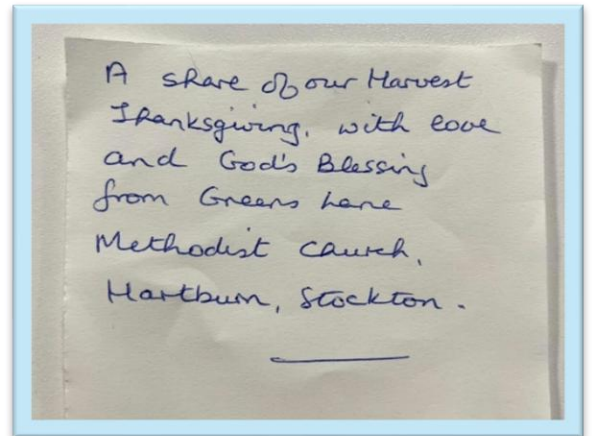 A share of our Harvest
Thanksgiving, with love
and God's Blessing
from Greens Lane
Methodist Church,
Hartburn, Stockton.